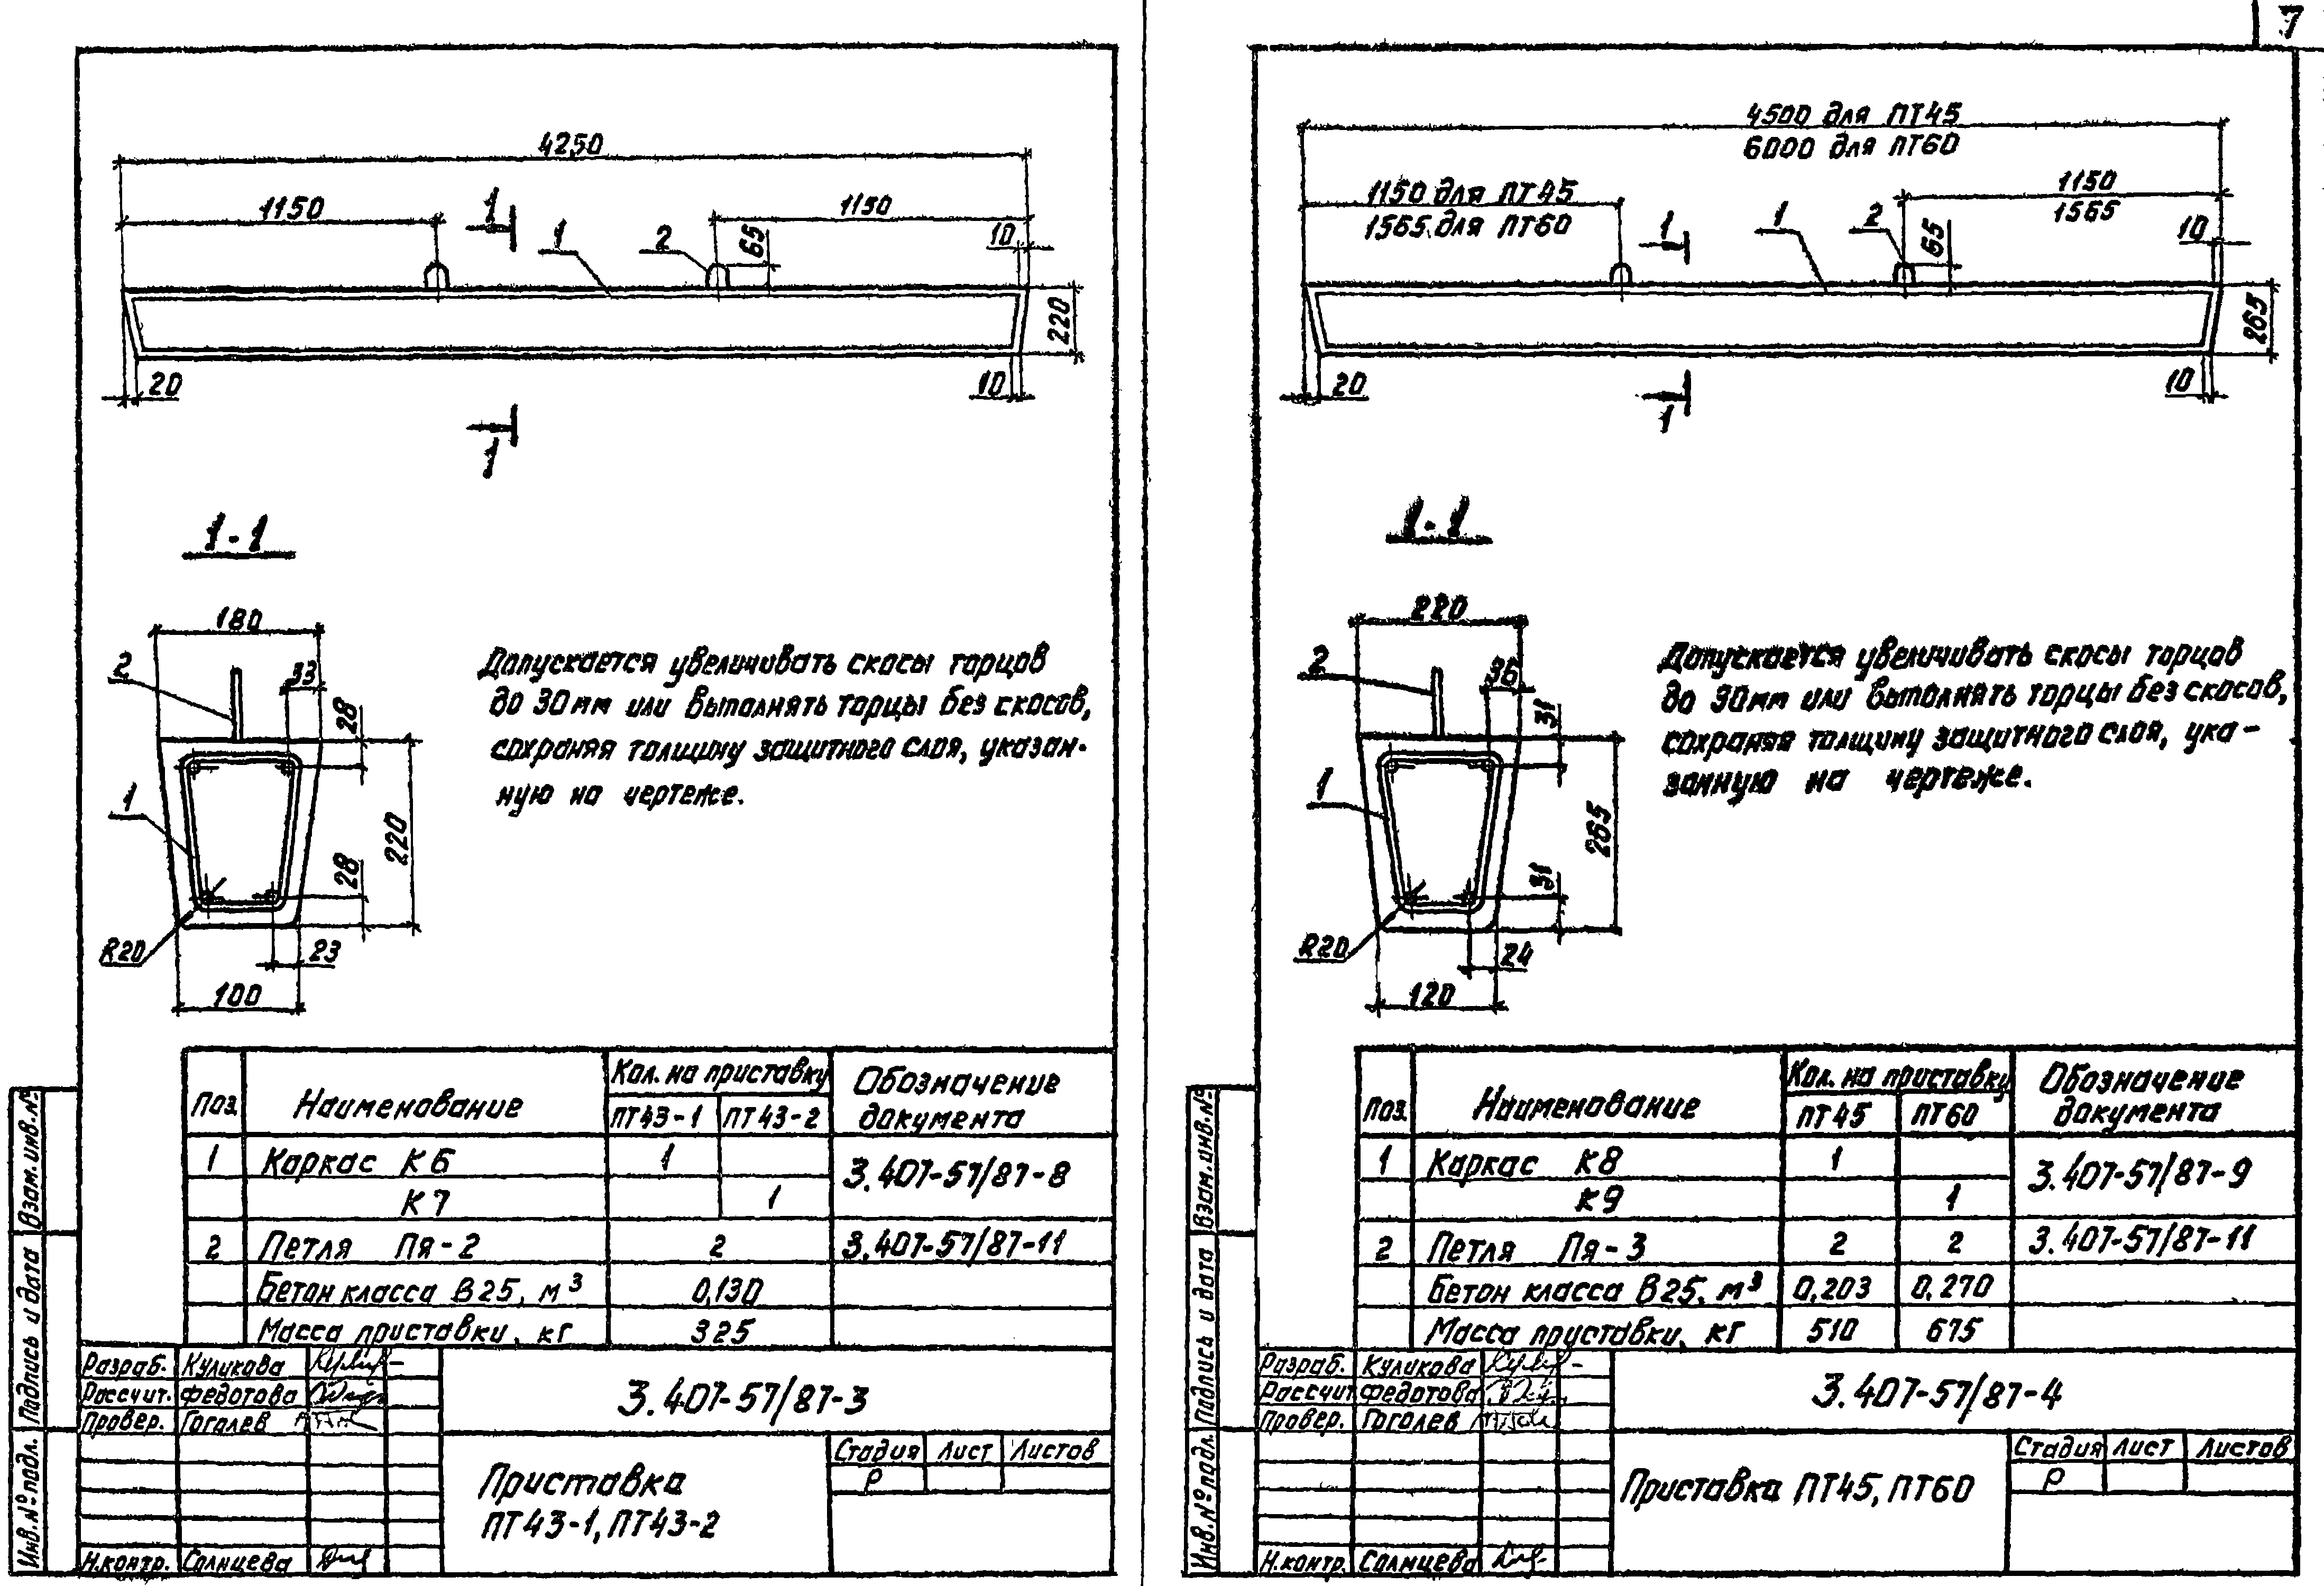 7
4250
1150
1
1
2
65
1150
10
220
20
10
1
1-1
180
2
33
28
1
220
28
R20
23
100
Допускается увеличивать скосы торцов
до 30мм или выполнять торцы без скосов,
сохраняя толщину защитного слоя, указан-
ную на чертеже.
Поз. Наименование Кол. на приставку Обозначение документа
ПТ43-1 ПТ43-2
1 Каркас К6 1 3.407-57/87-8
К7 1
2 Петля Пя-2 2 3.407-57/87-11
Бетон класса В25, м³ 0,130
Масса приставки, кг 325
Разраб. Куликова
Рассчит. Федотова
Провер. Гоголев
Н.контр. Солнцева
3.407-57/87-3
Приставка
ПТ43-1, ПТ43-2
Стадия Лист Листов
Р
Взам.инв.№
Подпись и дата
Инв.№ подл.
4500 для ПТ45
6000 для ПТ60
1150 для ПТ45
1565 для ПТ60
1
1
2
65
1150
1565
10
265
20
10
1
1-1
220
2
36
31
1
265
31
R20
24
120
Допускается увеличивать скосы торцов
до 30мм или выполнять торцы без скосов,
сохраняя толщину защитного слоя, ука-
занную на чертеже.
Поз. Наименование Кол. на приставку Обозначение документа
ПТ45 ПТ60
1 Каркас К8 1 3.407-57/87-9
К9 1
2 Петля Пя-3 2 2 3.407-57/87-11
Бетон класса В25, м³ 0,203 0,270
Масса приставки, кг 510 675
Разраб. Куликова
Рассчит. Федотова
Провер. Гоголев
Н.контр. Солнцева
3.407-57/87-4
Приставка ПТ45, ПТ60
Стадия Лист Листов
Р
Взам.инв.№
Подпись и дата
Инв.№ подл.